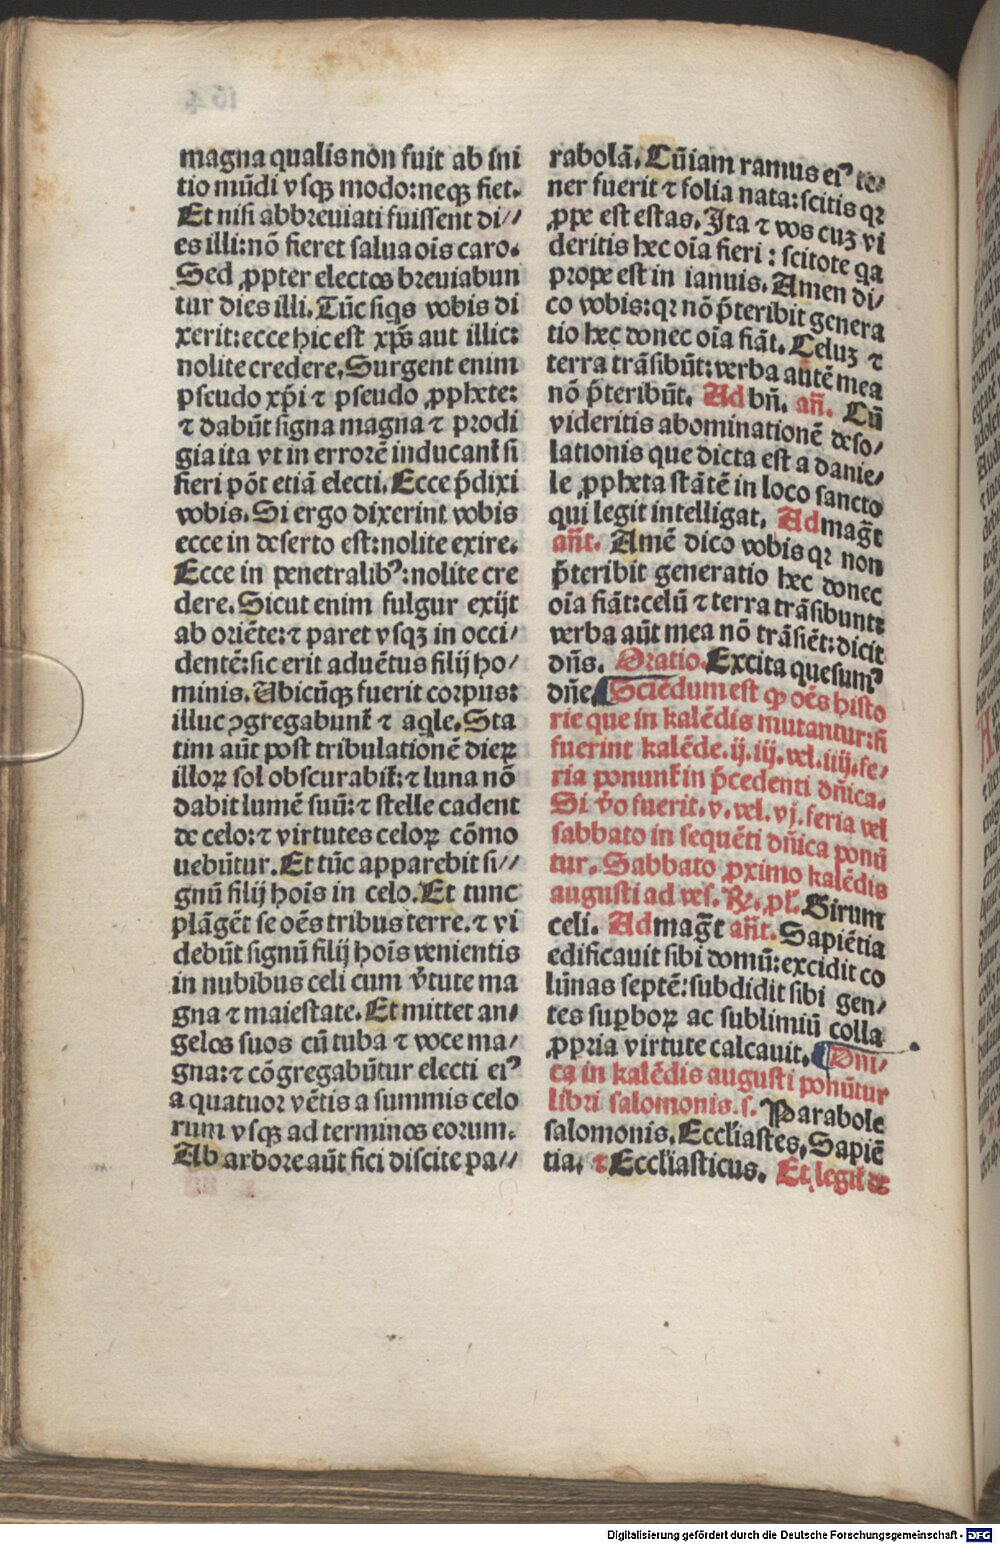 magna qualis non fuit ab ini
tio mũdi vsqꝫ modo:neqꝫ fiet.
Et nisi abbreuiati fuissent di//
es illi:nõ fieret salua oĩs caro.
Sed ꝓpter electos breuiabun
tur dies illi.Tũc siqs vobis di
xerit:ecce hic est xp̃s aut illic:
nolite credere.Surgent enim
pseudo xp̃i ⁊ pseudo ꝓphete:
⁊ dabũt signa magna ⁊ prodi
gia ita vt in errorẽ inducant̃ si
fieri põt etiã electi.Ecce p̃dixi
vobis.Si ergo dixerint vobis
ecce in deserto est:nolite exire.
Ecce in penetralibꝰ:nolite cre
dere.Sicut enim fulgur exijt
ab oriẽte:⁊ paret vsqꝫ in occi/
dentẽ:sic erit aduẽtus filij ho/
minis.Ubicũqꝫ fuerit corpus:
illuc ꝯgregabunt̃ ⁊ aq̃le.Sta
tim aũt post tribulationẽ dieꝝ
illoꝝ sol obscurabit̃:⁊ luna nõ
dabit lumẽ suũ:⁊ stelle cadent
de celo:⁊ virtutes celoꝝ cõmo
uebũtur.Et tũc apparebit si//
gnũ filij hoĩs in celo.Et tunc
plãgẽt se oẽs tribus terre.⁊ vi
debũt signũ filij hoĩs venientis
in nubibus celi cum ṽtute ma
gna ⁊ maiestate.Et mittet an/
gelos suos cũ tuba ⁊ voce ma/
gna:⁊ cõgregabũtur electi eiꝰ
a quatuor vẽtis a summis celo
rum vsqꝫ ad terminos eorum.
Ab arbore aũt fici discite pa//
rabolã.Cũ iam ramus eiꝰ te/
ner fuerit ⁊ folia nata:scitis qꝛ
ꝓpe est estas.Ita ⁊ vos cuꝫ vi
deritis hec oĩa fieri:scitote qa
prope est in ianuis.Amen di/
co vobis:qꝛ nõ p̃teribit genera
tio hec donec oĩa fiãt.Celuꝫ ⁊
terra trãsibũt:verba autẽ mea
nõ p̃teribũt. Ad bñ. añ. Cũ
videritis abominationẽ deso/
lationis que dicta est a danie/
le ꝓpheta stãtẽ in loco sancto
qui legit intelligat. Ad mag̃t
añt. Amẽ dico vobis qꝛ non
p̃teribit generatio hec donec
oĩa fiãt:celũ ⁊ terra trãsibunt:
verba aũt mea nõ trãsiẽt:dicit
dñs. Oratio. Excita quesumꝰ
dñe. Sciẽdum est ꝙ oẽs histo
rie que in kalẽdis mutantur:si
fuerint kalẽde.ij.iij.vel.iiij.fe/
ria ponunt̃ in p̃cedenti dñica.
Si ṽo fuerit.v.vel.vj.feria vel
sabbato in sequẽti dñica ponũ
tur. Sabbato ꝓximo kalẽdis
augusti ad ves. ℞. pl̃. Girum
celi. Ad mag̃t añt. Sapiẽtia
edificauit sibi domũ:excidit co
lũnas septẽ:subdidit sibi gen/
tes suꝑboꝝ ac sublimiũ colla
ꝓpria virtute calcauit. Dñi/
ca in kalẽdis augusti ponũtur
libri salomonis.s. Parabole
salomonis.Eccl̃iastes.Sapiẽ
tia. ⁊ Eccl̃iasticus. Et legit̃ de
Digitalisierung gefördert durch die Deutsche Forschungsgemeinschaft - DFG